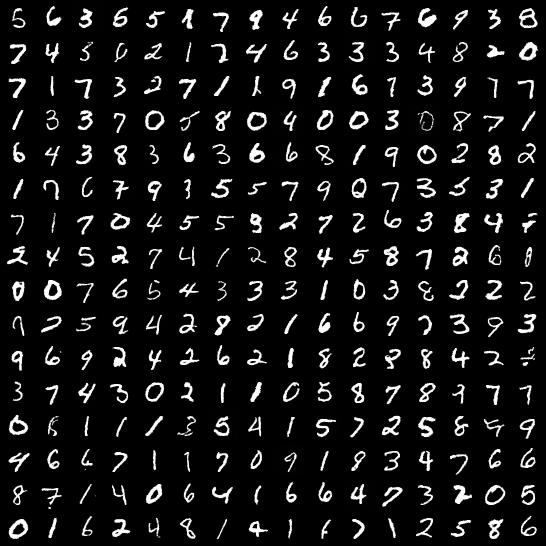 5 6 3 6 5 1 7 9 4 6 6 7 6 9 3 8
7 4 5 0 2 1 7 4 6 3 3 3 4 8 2 0
7 1 7 3 2 7 1 1 9 1 6 7 3 9 7 7
1 3 3 7 0 5 8 0 4 0 0 3 0 8 7 1
6 4 3 8 3 6 3 6 6 8 1 9 0 2 8 2
1 7 6 7 9 3 5 5 7 9 0 7 3 5 3 1
7 1 7 0 4 5 5 9 2 7 2 6 3 8 4
2 4 5 2 7 4 1 2 8 4 5 8 7 2 6 0
0 0 7 6 5 4 3 3 3 1 0 3 8 2 2 2
7 2 5 9 4 2 8 2 1 6 6 9 7 3 9 3
9 6 9 2 4 2 6 2 1 8 2 8 8 4 2
3 7 4 3 0 2 1 1 0 5 8 7 8 7 7
0 8 1 1 1 3 5 4 1 5 7 2 5 8 9 9
4 6 6 7 1 1 7 0 9 1 8 3 4 7 6 6
8 7 1 4 0 6 4 1 6 6 4 7 3 2 0 5
0 1 6 2 4 8 1 4 1 1 7 1 2 5 8 6